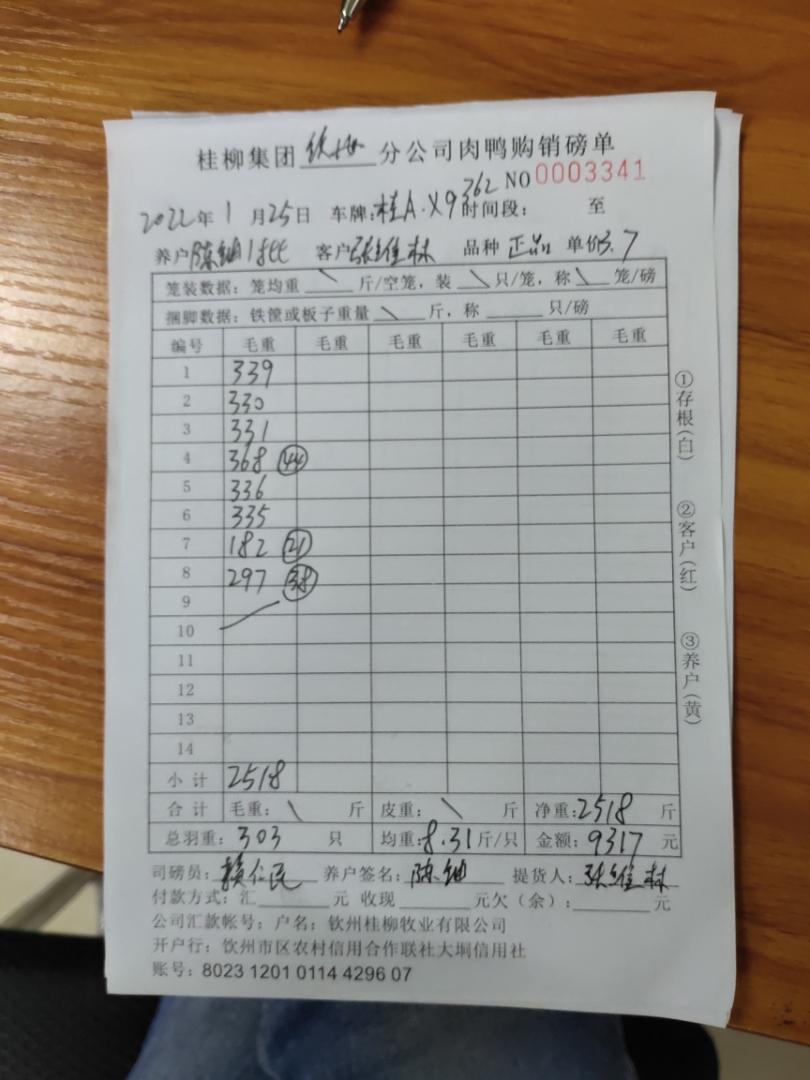 桂柳集团 钦州 分公司肉鸭购销磅单
NO 0003341
2022年1月25日 车牌:桂A·X9362 时间段: 至
养户 陈 客户 张维林 品种 正品 单价3.7
笼装数据:笼均重 \ 斤/空笼,装 \ 只/笼,称 \ 笼/磅
捆脚数据:铁筐或板子重量 \ 斤,称 只/磅
编号 毛重 毛重 毛重 毛重 毛重 毛重
1 339
2 330
3 331
4 368 44
5 336
6 335
7 182 21
8 297 38
9
10
11
12
13
14
小计 2518
合计 毛重: \ 斤 皮重: \ 斤 净重:2518 斤
总羽重:303 只 均重:8.31斤/只 金额:9317 元
司磅员:赖仁民 养户签名:陈 提货人:张维林
付款方式:汇 元 收现 元欠(余): 元
公司汇款帐号:户名:钦州桂柳牧业有限公司
开户行:钦州市区农村信用合作联社大垌信用社
账号:8023 1201 0114 4296 07
①存根(白)
②客户(红)
③养户(黄)